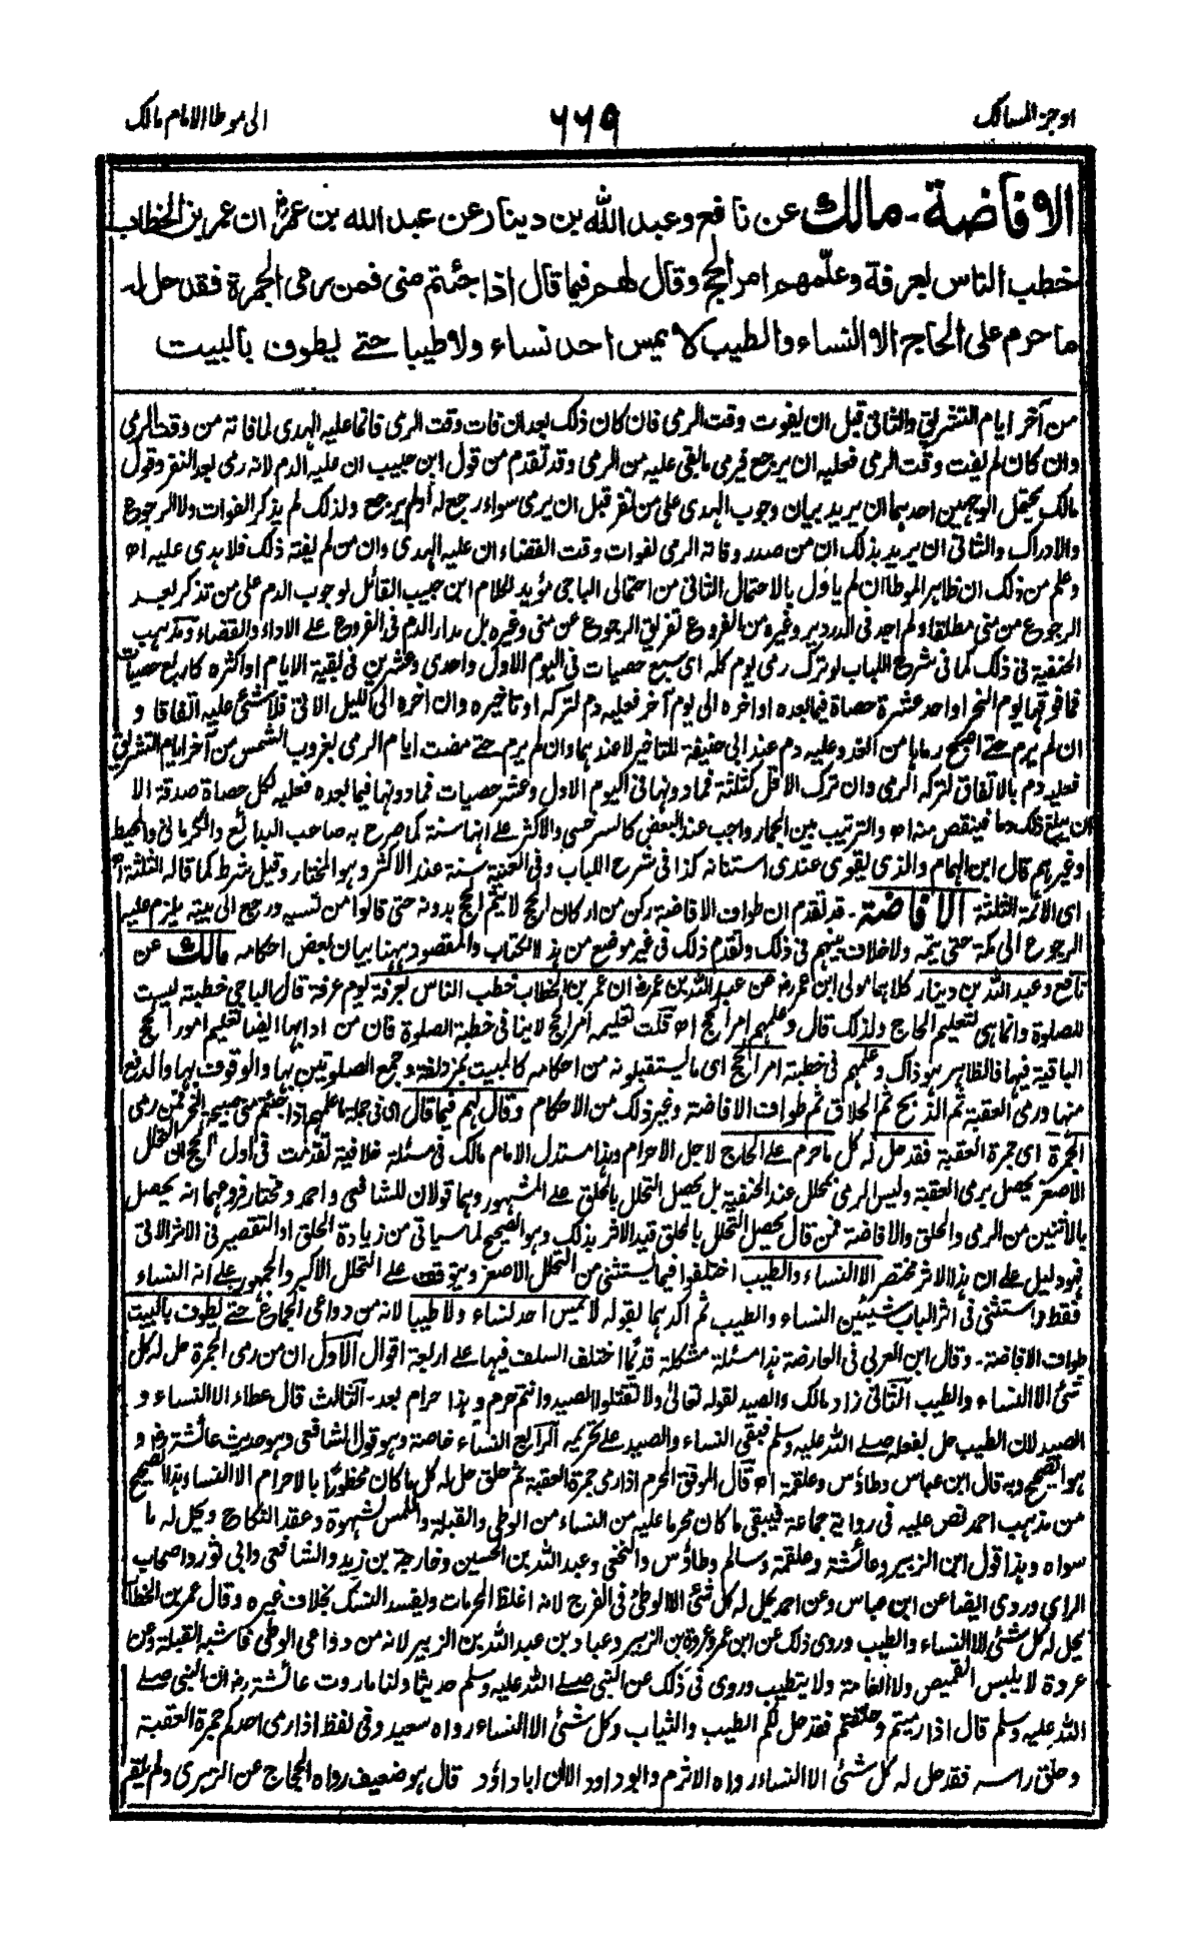 اوجز المسالک
٦٦٩
الی موطا الامام مالک
الافاضة۔ مالك عن نافع وعبد الله بن دينار عن عبد الله بن عمر ان عمر بن الخطاب
خطب الناس بعرفة وعلّمهم امر الحج وقال لهم فيما قال اذا جئتم منى فمن رمى الجمرة فقد حل له
ما حرم على الحاج الا النساء والطيب لا يمس احد نساء ولا طيبا حتے يطوف بالبيت
من آخر ايام التشريق والثانی قبل ان يفوت وقت الرمی فان كان ذلك بعد ان فات وقت الرمی فانما عليه الهدی لما فاته من وقت الرمی
وان كان لم يفت وقت الرمی فعليه ان يرجع فيرمی ما بقی عليه من الرمی وقد تقدم من قول ابن حبيب ان عليه الدم لانه رمی بعد النفر وقول
مالك يحتمل الوجهين احدهما ان يريد بيان وجوب الهدی علی من نفر قبل ان يرمی سواء رجع له او لم يرجع ولذلك لم يذكر الفوات ولا الرجوع
والادراك والثانی ان يريد بذلك ان من صدر وفاته الرمی لفوات وقت القضاء ان عليه الهدی وان من لم يفته ذلك فلا هدی عليه اھ
وعلم من ذلك ان ظاهر الموطا ان لم ياول بالاحتمال الثانی من احتمالی الباجی مؤيد لكلام ابن حبيب القائل لوجوب الدم علی من تذكر بعد
الرجوع من منی مطلقا ولم اجد فی الدردير وغيره من الفروع تفريق الرجوع عن منی وغيره بل مدار الدم فی الفروع علے الاداء والقضاء ومذهب
الحنفية فی ذلك كما فی شرح اللباب لو ترك رمی يوم كله ای سبع حصيات فی اليوم الاول واحدی وعشرين فی بقية الايام او اكثره كاربع حصيات
فما فوقها يوم النحر او احد عشرة حصاة فيما بعده او اخره الی يوم آخر فعليه دم لتركه او تاخيره وان اخره الی الليل الآتی فلا شئی عليه اتفاقا و
ان لم يرم حتے اصبح رماها من الغد وعليه دم عند ابی حنيفة للتاخير لا عندهما وان لم يرم حتے مضت ايام الرمی بغروب الشمس من آخر ايام التشريق
فعليه دم بالاتفاق لتركه الرمی وان ترك الاقل كثلثة فما دونها فی اليوم الاول وعشر حصيات فما دونها فيما بعده فعليه لكل حصاة صدقة الا
ان يبلغ ذلك دما فينقص منه اھ والترتيب بين الجمار واجب عند البعض كالسرخسی والاكثر علے انها سنة كما صرح به صاحب البدائع والكرمانی والمحيط
وغيرهم قال ابن الهمام والذی يقوی عندی استنانه كذا فی شرح اللباب وفی الغنية سنة عند الاكثر وهو المختار وقيل شرط كما قاله الثلثة اھ
ای الائمة الثلثة الافاضة۔ قد تقدم ان طواف الافاضة ركن من اركان الحج لا يتم الحج بدونه حتی قالوا من نسيه ورجع الی بيته يلزم عليه
الرجوع الی مكة حتی يتمه ولا خلاف بينهم فی ذلك وتقدم ذلك فی غير موضع من هذا الكتاب والمقصود ههنا بيان بعض احكامه مالك عن
نافع وعبد الله بن دينار كلاهما مولی ابن عمر عن عبد الله بن عمر ان عمر بن الخطاب خطب الناس بعرفة يوم عرفة قال الباجی خطبته ليست
للصلوة وانما هی لتعليم الحاج ولذلك قال وعلمهم امر الحج اھ قلت تعليمه امر الحج لا ينافی خطبة الصلوة فان من ادابها ايضا تعليم امور الحج
الباقية فيها فالظاهر هو ذاك وعلمهم فی خطبته امر الحج ای ما يستقبلونه من احكامه كالمبيت بمزدلفة وجمع الصلوتين بها والوقوف بها والدفع
منها ورمی العقبة ثم الذبح ثم الحلاق ثم طواف الافاضة وغير ذلك من الاحكام وقال لهم فيما قال ای فی جملة ما علمهم اذا جئتم منی صبيحة النحر فمن رمی
الجمرة ای جمرة العقبة فقد حل له كل ما حرم علے الحاج لاجل الاحرام وبذا مستدل الامام مالك فی مسئلة خلافية تقدمت فی اول الحج ان التحلل
الاصغر يحصل برمی العقبة وليس الرمی بمحلل عند الحنفية بل يحصل التحلل بالحلق علے المشهور وهما قولان للشافعی واحمد ومختار فروعهما انه يحصل
بالاثنين من الرمی والحلق والافاضة فمن قال يحصل التحلل بالحلق قيد الاثر بذلك وهو الصحيح لما سياتی من زيادة الحلق او التقصير فی الاثر الآتی
فهو دليل علے ان هذا الاثر مختصر الا النساء والطيب اختلفوا فيما يستثنی من التحلل الاصغر ويتوقف علے التحلل الاكبر والجمهور علے انه النساء
فقط واستثنی فی اثر الباب شيئين النساء والطيب ثم اكدهما بقوله لا يمس احد نساء ولا طيبا لانه من دواعی الجماع حتے يطوف بالبيت
طواف الافاضة۔ وقال ابن العربی فی العارضة هذا مسئلة مشكلة قديما اختلف السلف فيها علے اربعة اقوال الاول ان من رمی الجمرة حل له كل
شئی الا النساء والطيب الثانی زاد مالك والصيد لقوله تعالی ولا تقتلوا الصيد وانتم حرم وهذا حرام بعد۔ الثالث قال عطاء الا النساء و
الصيد لان الطيب حل بفعله صلے الله عليه وسلم فبقی النساء والصيد علے تحريمه الرابع النساء خاصة وهو قول الشافعی وهو حديث عائشة و
هو الصحيح وبه قال ابن عباس وطاؤس وعلقمة اھ قال الموفق المحرم اذا رمی جمرة العقبة ثم حلق حل له كل ما كان محظورا بالاحرام الا النساء هذا الصحيح
من مذهب احمد نص عليه فی رواية جماعة فيبقی ما كان محرما عليه من النساء من الوطی والقبلة واللمس لشهوة وعقد النكاح ويحل له ما
سواه وبذا قول ابن الزبير وعائشة وعلقمة وسالم وطاؤس والنخعی وعبد الله بن الحسين وخارجة بن زيد والشافعی وابی ثور واصحاب
الرای وروی ايضا عن ابن عباس وعن احمد يحل له كل شئی الا الوطی فی الفرج لانه اغلظ المحرمات ويفسد النسك بخلاف غيره وقال عمر بن الخطاب
يحل له كل شئی الا النساء والطيب وروی ذلك عن ابن عمر وعروة بن الزبير وعباد بن عبد الله بن الزبير لانه من دواعی الوطی فاشبه القبلة وعن
عروة لا يلبس القميص ولا العمامة ولا يتطيب وروی فی ذلك عن النبی صلے الله عليه وسلم حديثا ولنا ما روت عائشة ان النبی صلے
الله عليه وسلم قال اذا رميتم وحلقتم فقد حل لكم الطيب والثياب وكل شئی الا النساء رواه سعيد وفی لفظ اذا رمی احدكم جمرة العقبة
وحلق راسه فقد حل له كل شئی الا النساء رواه الاثرم وابو داود الا ان ابا داود قال هو ضعيف رواه الحجاج عن الزهری ولم يلقه